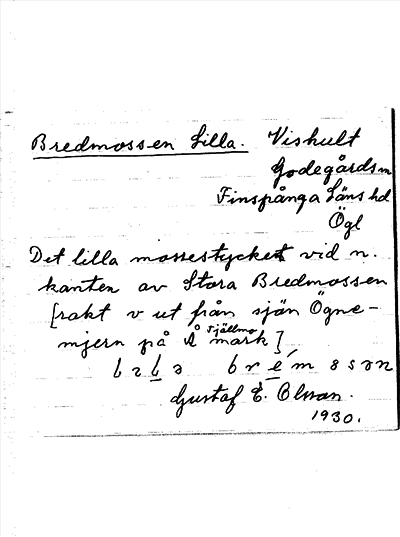 Bredmossen Lilla. Viskult
Godegårds sn
Finspånga Läns hd
Ögl
Det lilla mossestycket vid n.
kanten av Stora Bredmossen
[rakt v ut från sjön Ögne-
mjern på Å Själlmo mark]
Gustaf E. Olsson.
1930.